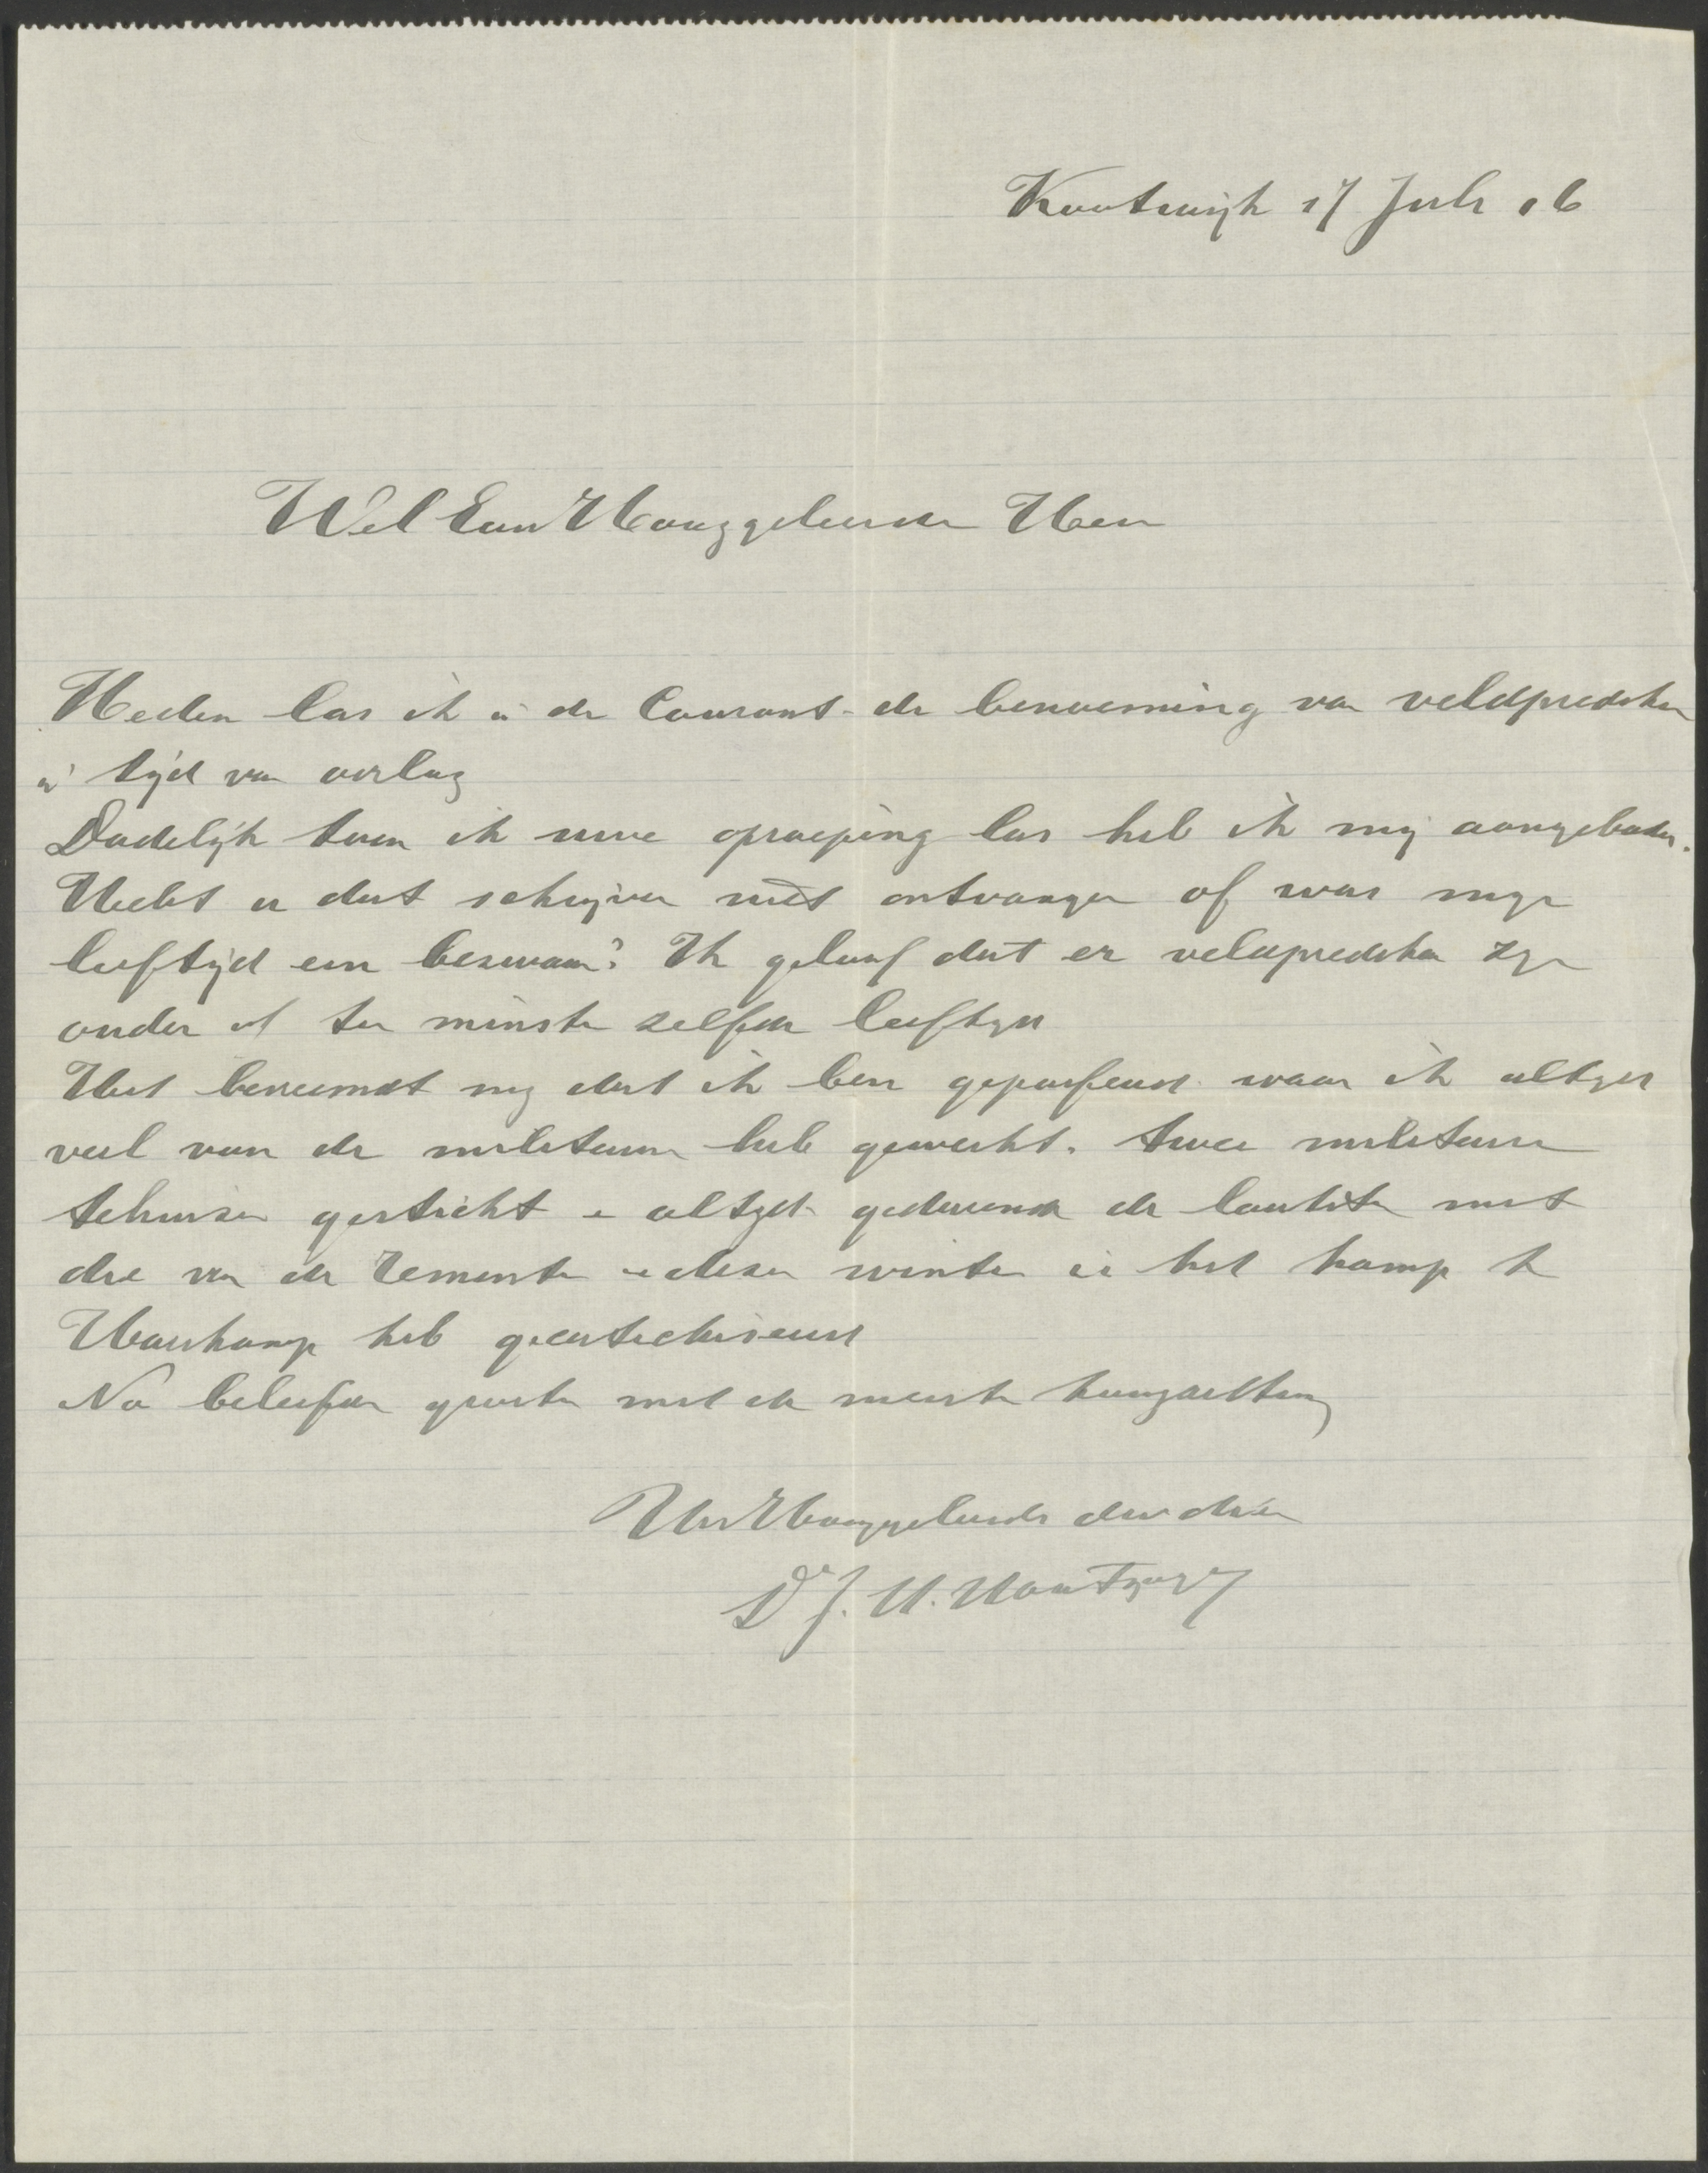 Kootwijk 17 Juli 16
Wel Eerw Hooggeleerde Heer
Heden las ik in de Courant de benoeming van veldprediker
in tijd van oorlog
Dadelijk toen ik uwe oproeping las heb ik mij aangeboden.
Hebt u dat schrijven niet ontvangen of was mijn
leeftijd een bezwaar? Ik geloof dat er veldprediker zijn
ouder of ten minste zelfde leeftijd
Het bevreemdt mij dat ik ben gepasseerd waar ik altijd
veel van de militairen heb gewerkt. twee militaire
tehuizen gesticht en altijd gedurende de laatste met
die van de remonte en deze winter in het kamp te
Harskamp heb gecatechiseerd
Na beleefde groeten met de meeste hoogachting
Uw Hooggeleerde dw dien
Dr J. H.